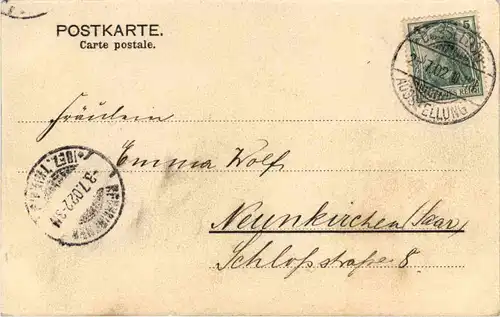 POSTKARTE.
Carte postale.
5
AUSSTELLUNG
Fräulein
Emma Wolf
Neunkirchen (Saar)
Schloßstraße 8.